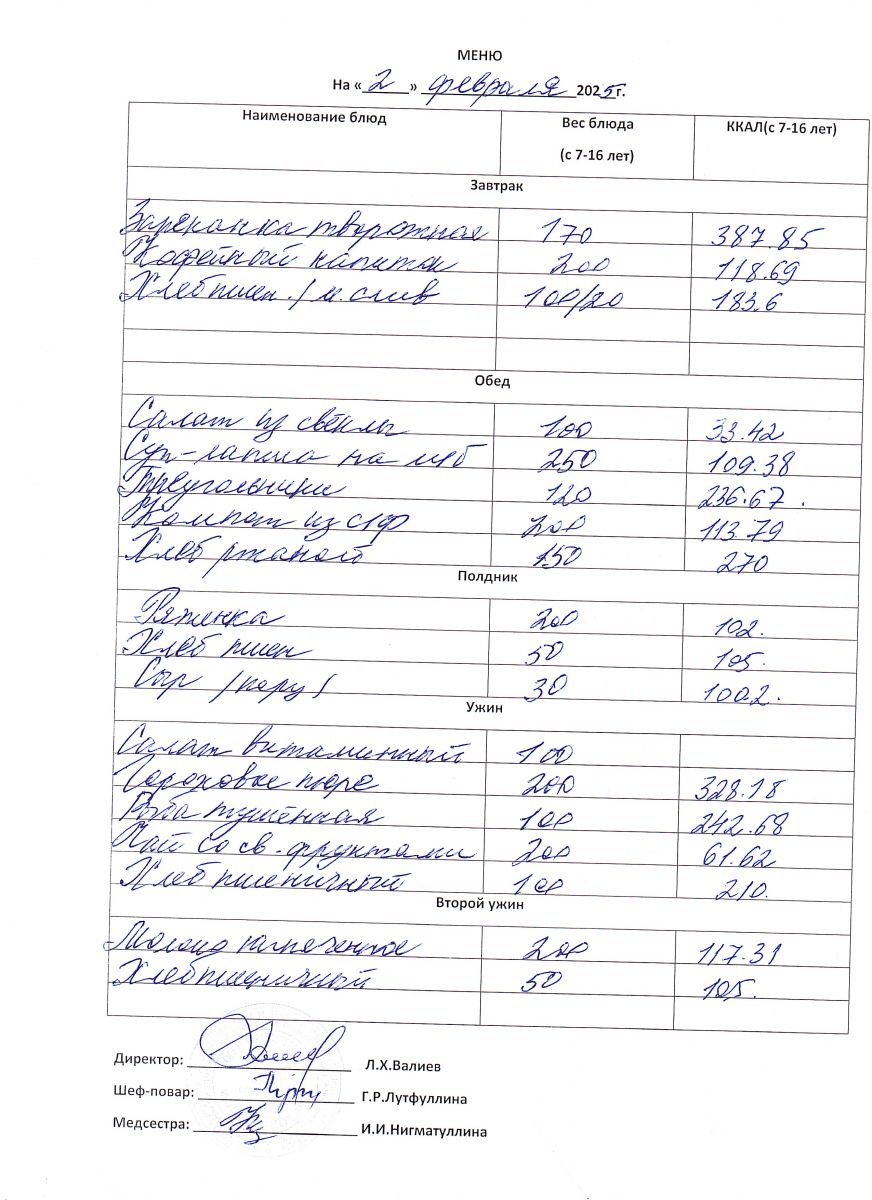 МЕНЮ
На « 2 » февраля 2025 г.
Наименование блюд Вес блюда (с 7-16 лет) ККАЛ(с 7-16 лет)
Завтрак
Запеканка творожная 170 387.85
Кофейный напиток 200 118.69
Хлеб пшен. / м. слив 100/20 183.6
Обед
Салат из свёклы 100 33.42
Суп-лапша на м/б 250 109.38
Треугольники 120 236.67.
Компот из с/ф 200 113.79
Хлеб ржаной 150 270
Полдник
Ряженка 200 102.
Хлеб пшен 50 105.
Сыр / 30 100.2.
Ужин
Салат витаминный 100
Гороховое пюре 200 328.18
Рыба тушёная 100 242.68
Чай со св. фруктами 200 61.62
Хлеб пшеничный 100 210.
Второй ужин
Молоко кипеченное 200 117.31
Хлеб пшеничный 50 105.
Директор: Л.Х.Валиев
Шеф-повар: Г.Р.Лутфуллина
Медсестра: И.И.Нигматуллина